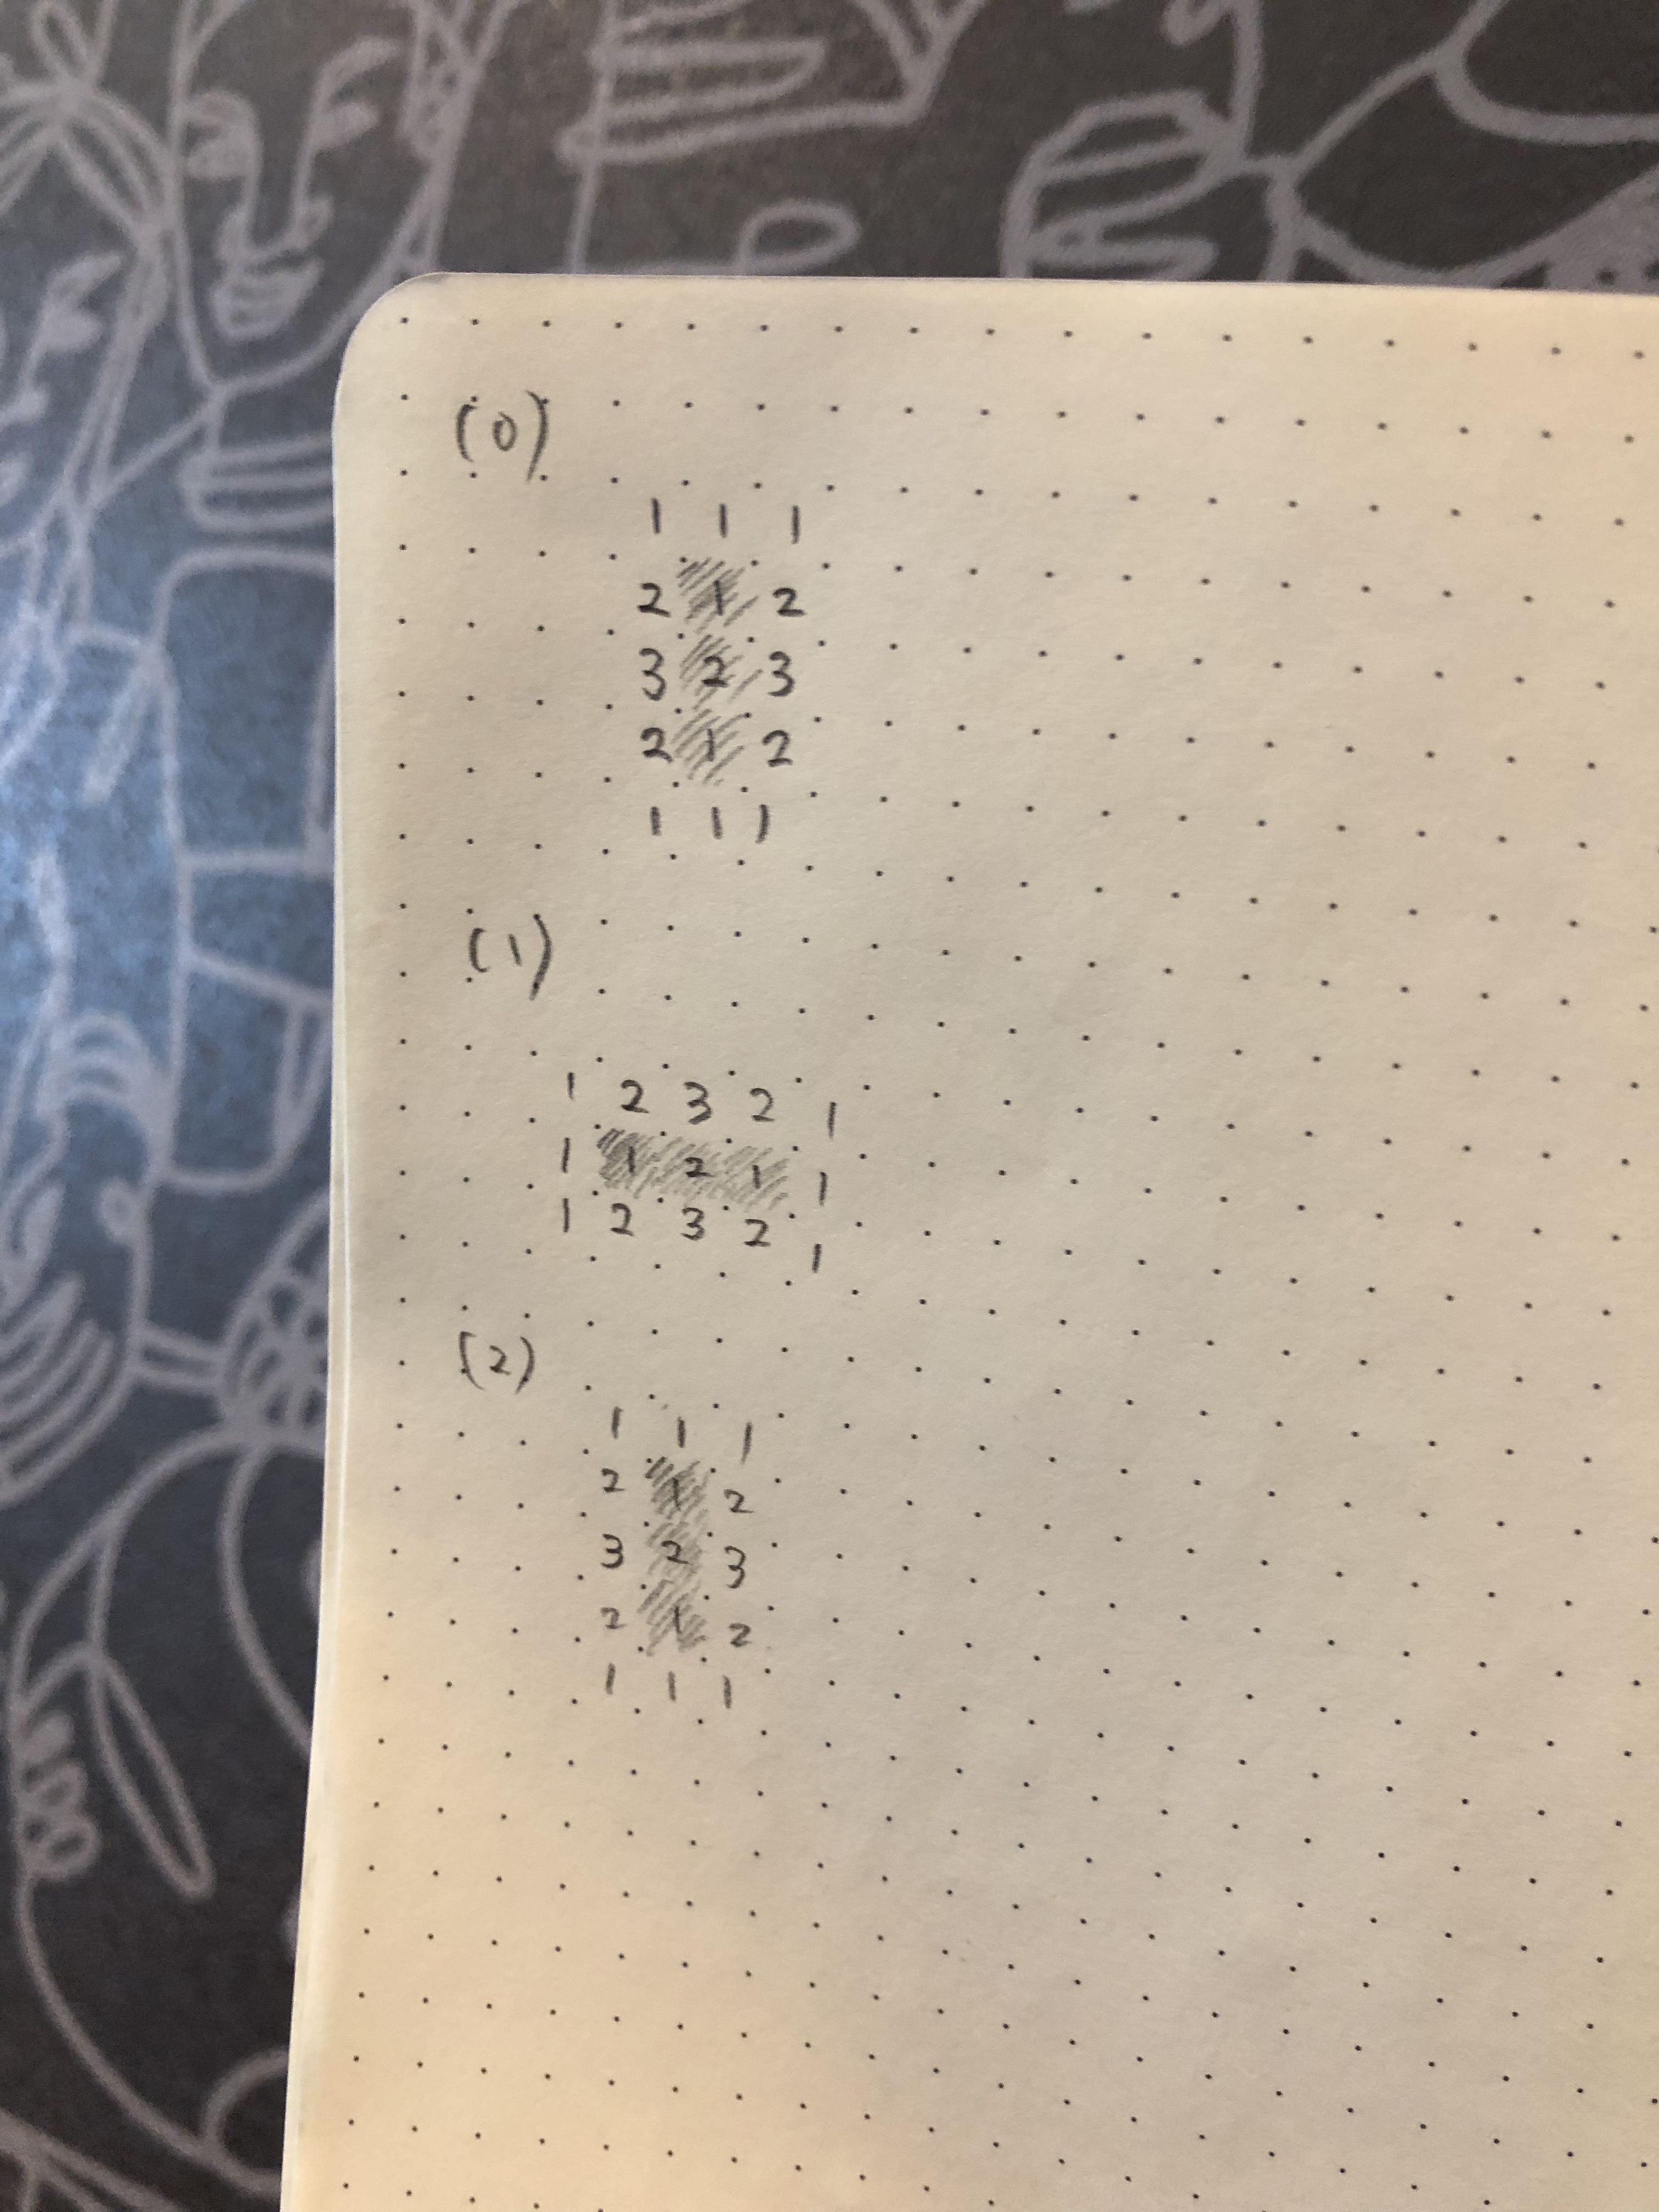 (0)
1 1 1
2 1 2
3 2 3
2 1 2
1 1 1
(1)
1 2 3 2 1
1 1 2 1 1
1 2 3 2 1
(2)
1 1 1
2 1 2
3 2 3
2 1 2
1 1 1